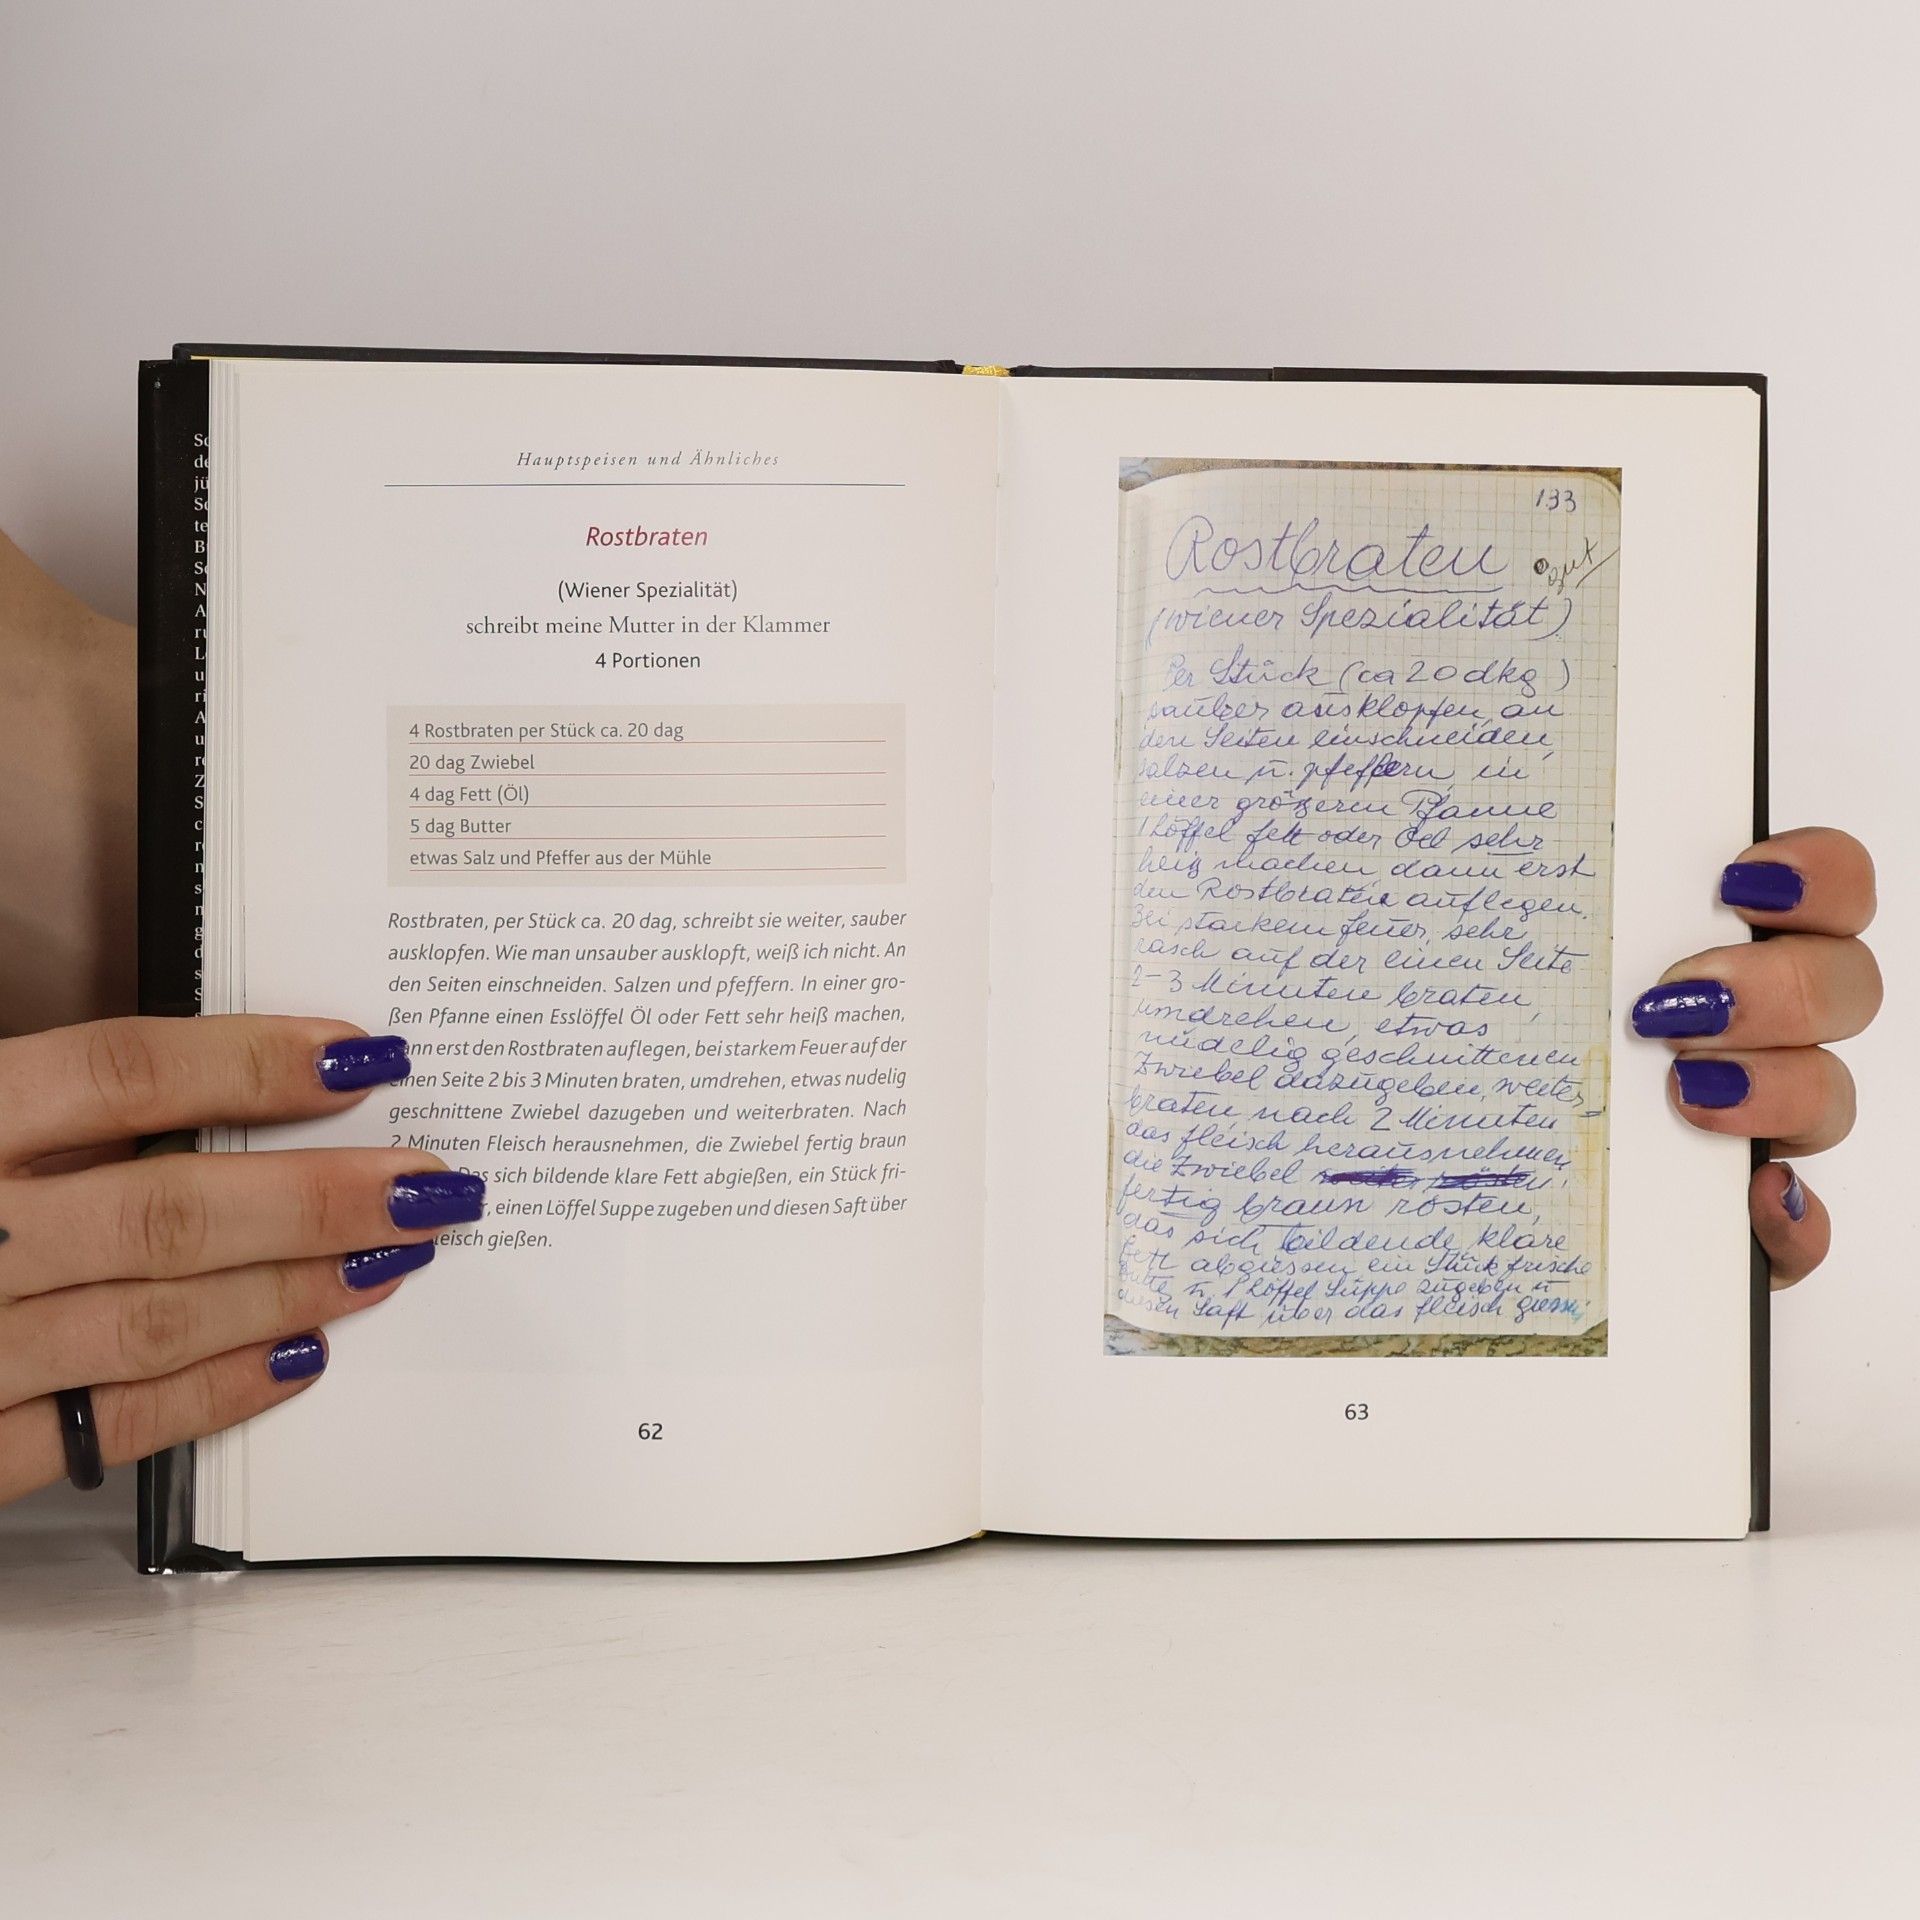 Hauptspeisen und Ähnliches
Rostbraten
(Wiener Spezialität)
schreibt meine Mutter in der Klammer
4 Portionen
4 Rostbraten per Stück ca. 20 dag
20 dag Zwiebel
4 dag Fett (Öl)
5 dag Butter
etwas Salz und Pfeffer aus der Mühle
Rostbraten, per Stück ca. 20 dag, schreibt sie weiter, sauber
ausklopfen. Wie man unsauber ausklopft, weiß ich nicht. An
den Seiten einschneiden. Salzen und pfeffern. In einer gro-
ßen Pfanne einen Esslöffel Öl oder Fett sehr heiß machen,
erst den Rostbraten auflegen, bei starkem Feuer auf der
einen Seite 2 bis 3 Minuten braten, umdrehen, etwas nudelig
geschnittene Zwiebel dazugeben und weiterbraten. Nach
2 Minuten Fleisch herausnehmen, die Zwiebel fertig braun
Das sich bildende klare Fett abgießen, ein Stück fri-
einen Löffel Suppe zugeben und diesen Saft über
gießen.
62
133
Rostbraten gut
(wiener Spezialität)
Per Stück (ca 20 dkg)
sauber ausklopfen, an
den Seiten einschneiden,
salzen u. pfeffern, in
einer größeren Pfanne
1 Löffel fett oder Oel sehr
heiß machen, dann erst
den Rostbraten auflegen.
Bei starkem feuer, sehr
rasch auf der einen Seite
2-3 Minuten braten,
umdrehen, etwas
nudelig geschnittenen
Zwiebel dazugeben, weiter=
braten, nach 2 Minuten
das fleisch herausnehmen,
die Zwiebel
fertig braun rösten,
das sich bildende klare
fett abgiessen ein Stück frische
Butter u. 1 Löffel Suppe zugeben u
diesen Saft über das fleisch giessen
63